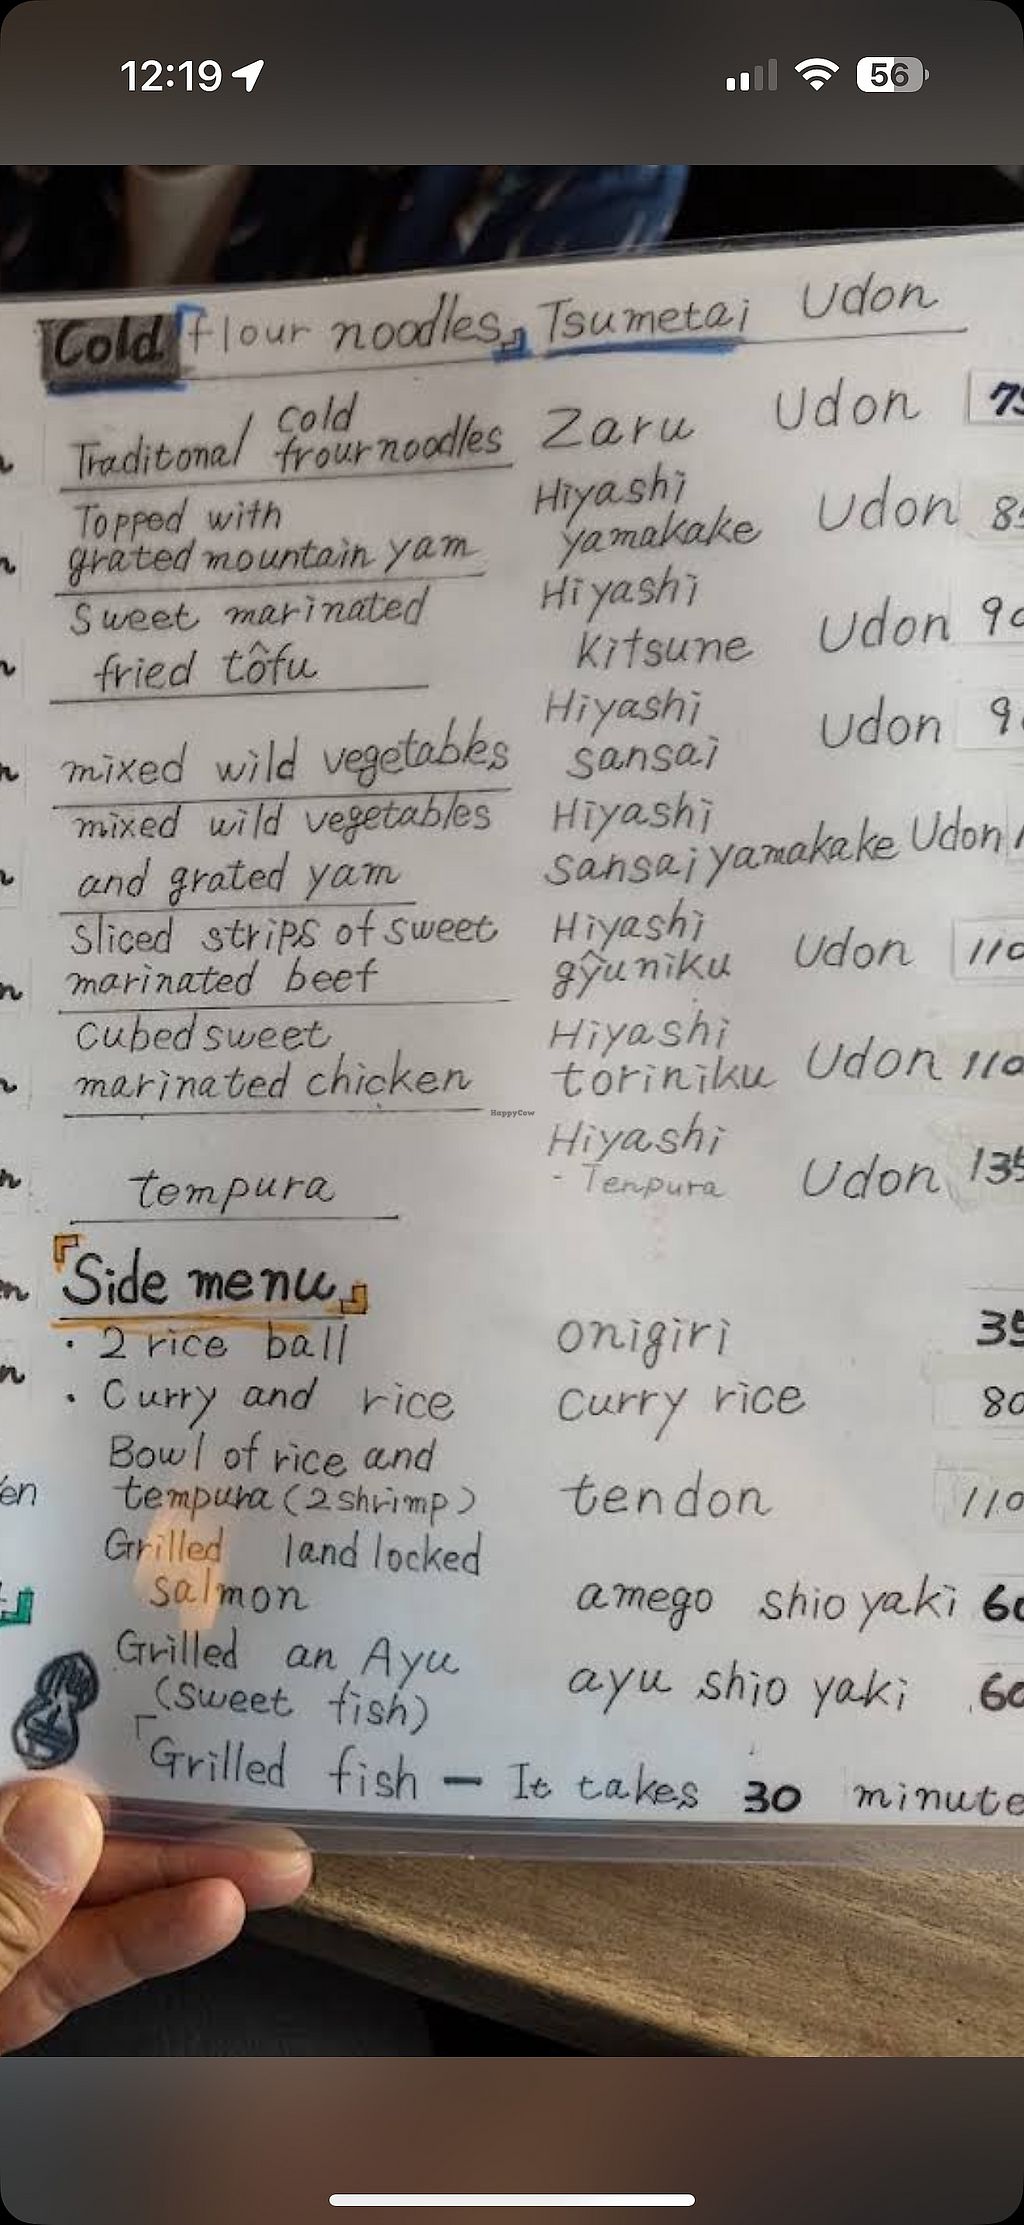 12:19
56
Cold 「flour noodles」 Tsumetai Udon
Traditonal cold frour noodles Zaru Udon
Topped with grated mountain yam Hiyashi yamakake Udon
Sweet marinated fried tôfu Hiyashi kitsune Udon
mixed wild vegetables Hiyashi sansai Udon
mixed wild vegetables and grated yam Hiyashi sansai yamakake Udon
Sliced strips of sweet marinated beef Hiyashi gŷuniku Udon
Cubed sweet marinated chicken Hiyashi toriniku Udon
HappyCow
tempura Hiyashi - Tenpura Udon
「Side menu」
・2 rice ball onigiri
・Curry and rice curry rice
Bowl of rice and tempura (2 shrimp) tendon
Grilled land locked salmon amego shio yaki
Grilled an Ayu (sweet fish) ayu shio yaki
「Grilled fish — It takes 30 minute